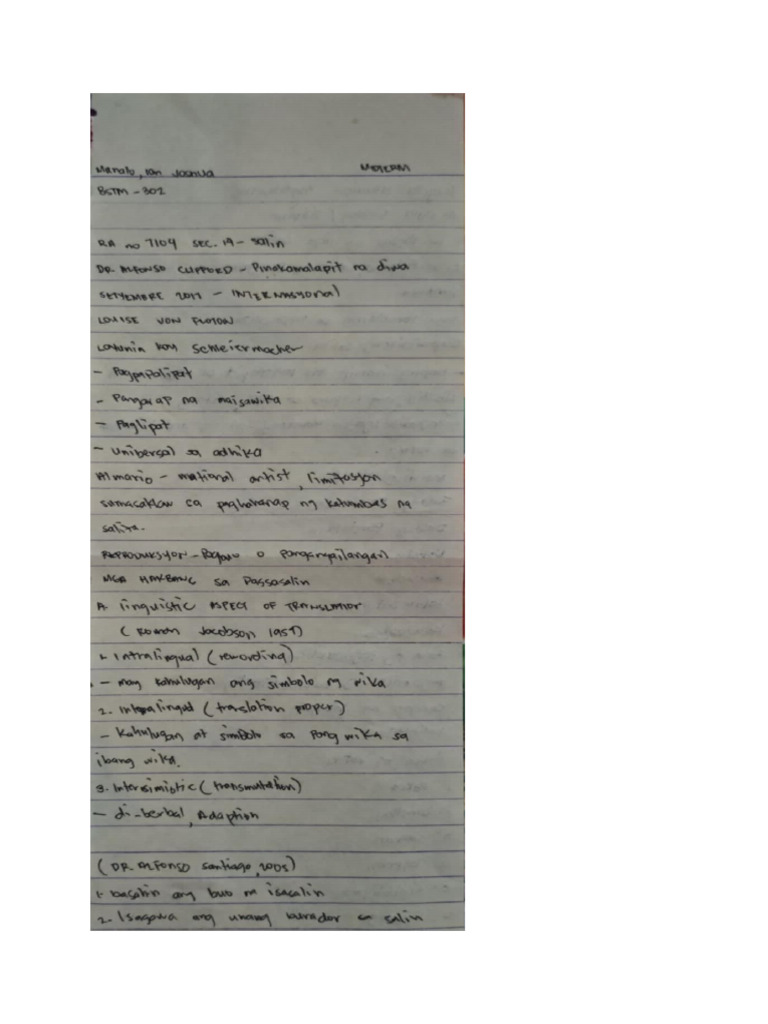 Manalo, Ian Joshua MIDTERM
BSTM - 302
RA no 7104 SEC. 14 - salin
DR. ALFONSO CLIFFORD - Pinakamalapit na diwa
SETYEMBRE 2017 - INTERNASYONAL
LOUISE VON FLOTOW
kay Schleiermacher
- Pagpapalipat
- Pangarap na maisawika
- Paglipat
- Unibersal sa adhika
Almario - national artist, limitasyon
sumasaklaw sa paghahanap ng katumbas na
salita.
REPRODUKSYON - o
MGA HAKBANG sa Pagsasalin
A. linguistic ASPECT OF TRANSLATION
( Roman Jacobson 1959)
1. Intralingual (rewording)
- may kahulugan ang simbolo ng wika
2. Interlingual (translation proper)
- Kahulugan at simbolo sa pang wika sa
ibang wika.
3. Intersimistic (transmutation)
- di-berbal, Adaption
(DR. ALFONSO Santiago, 2005)
1. basahin ang buo na isasalin
2. Isagawa ang unang burador sa salin